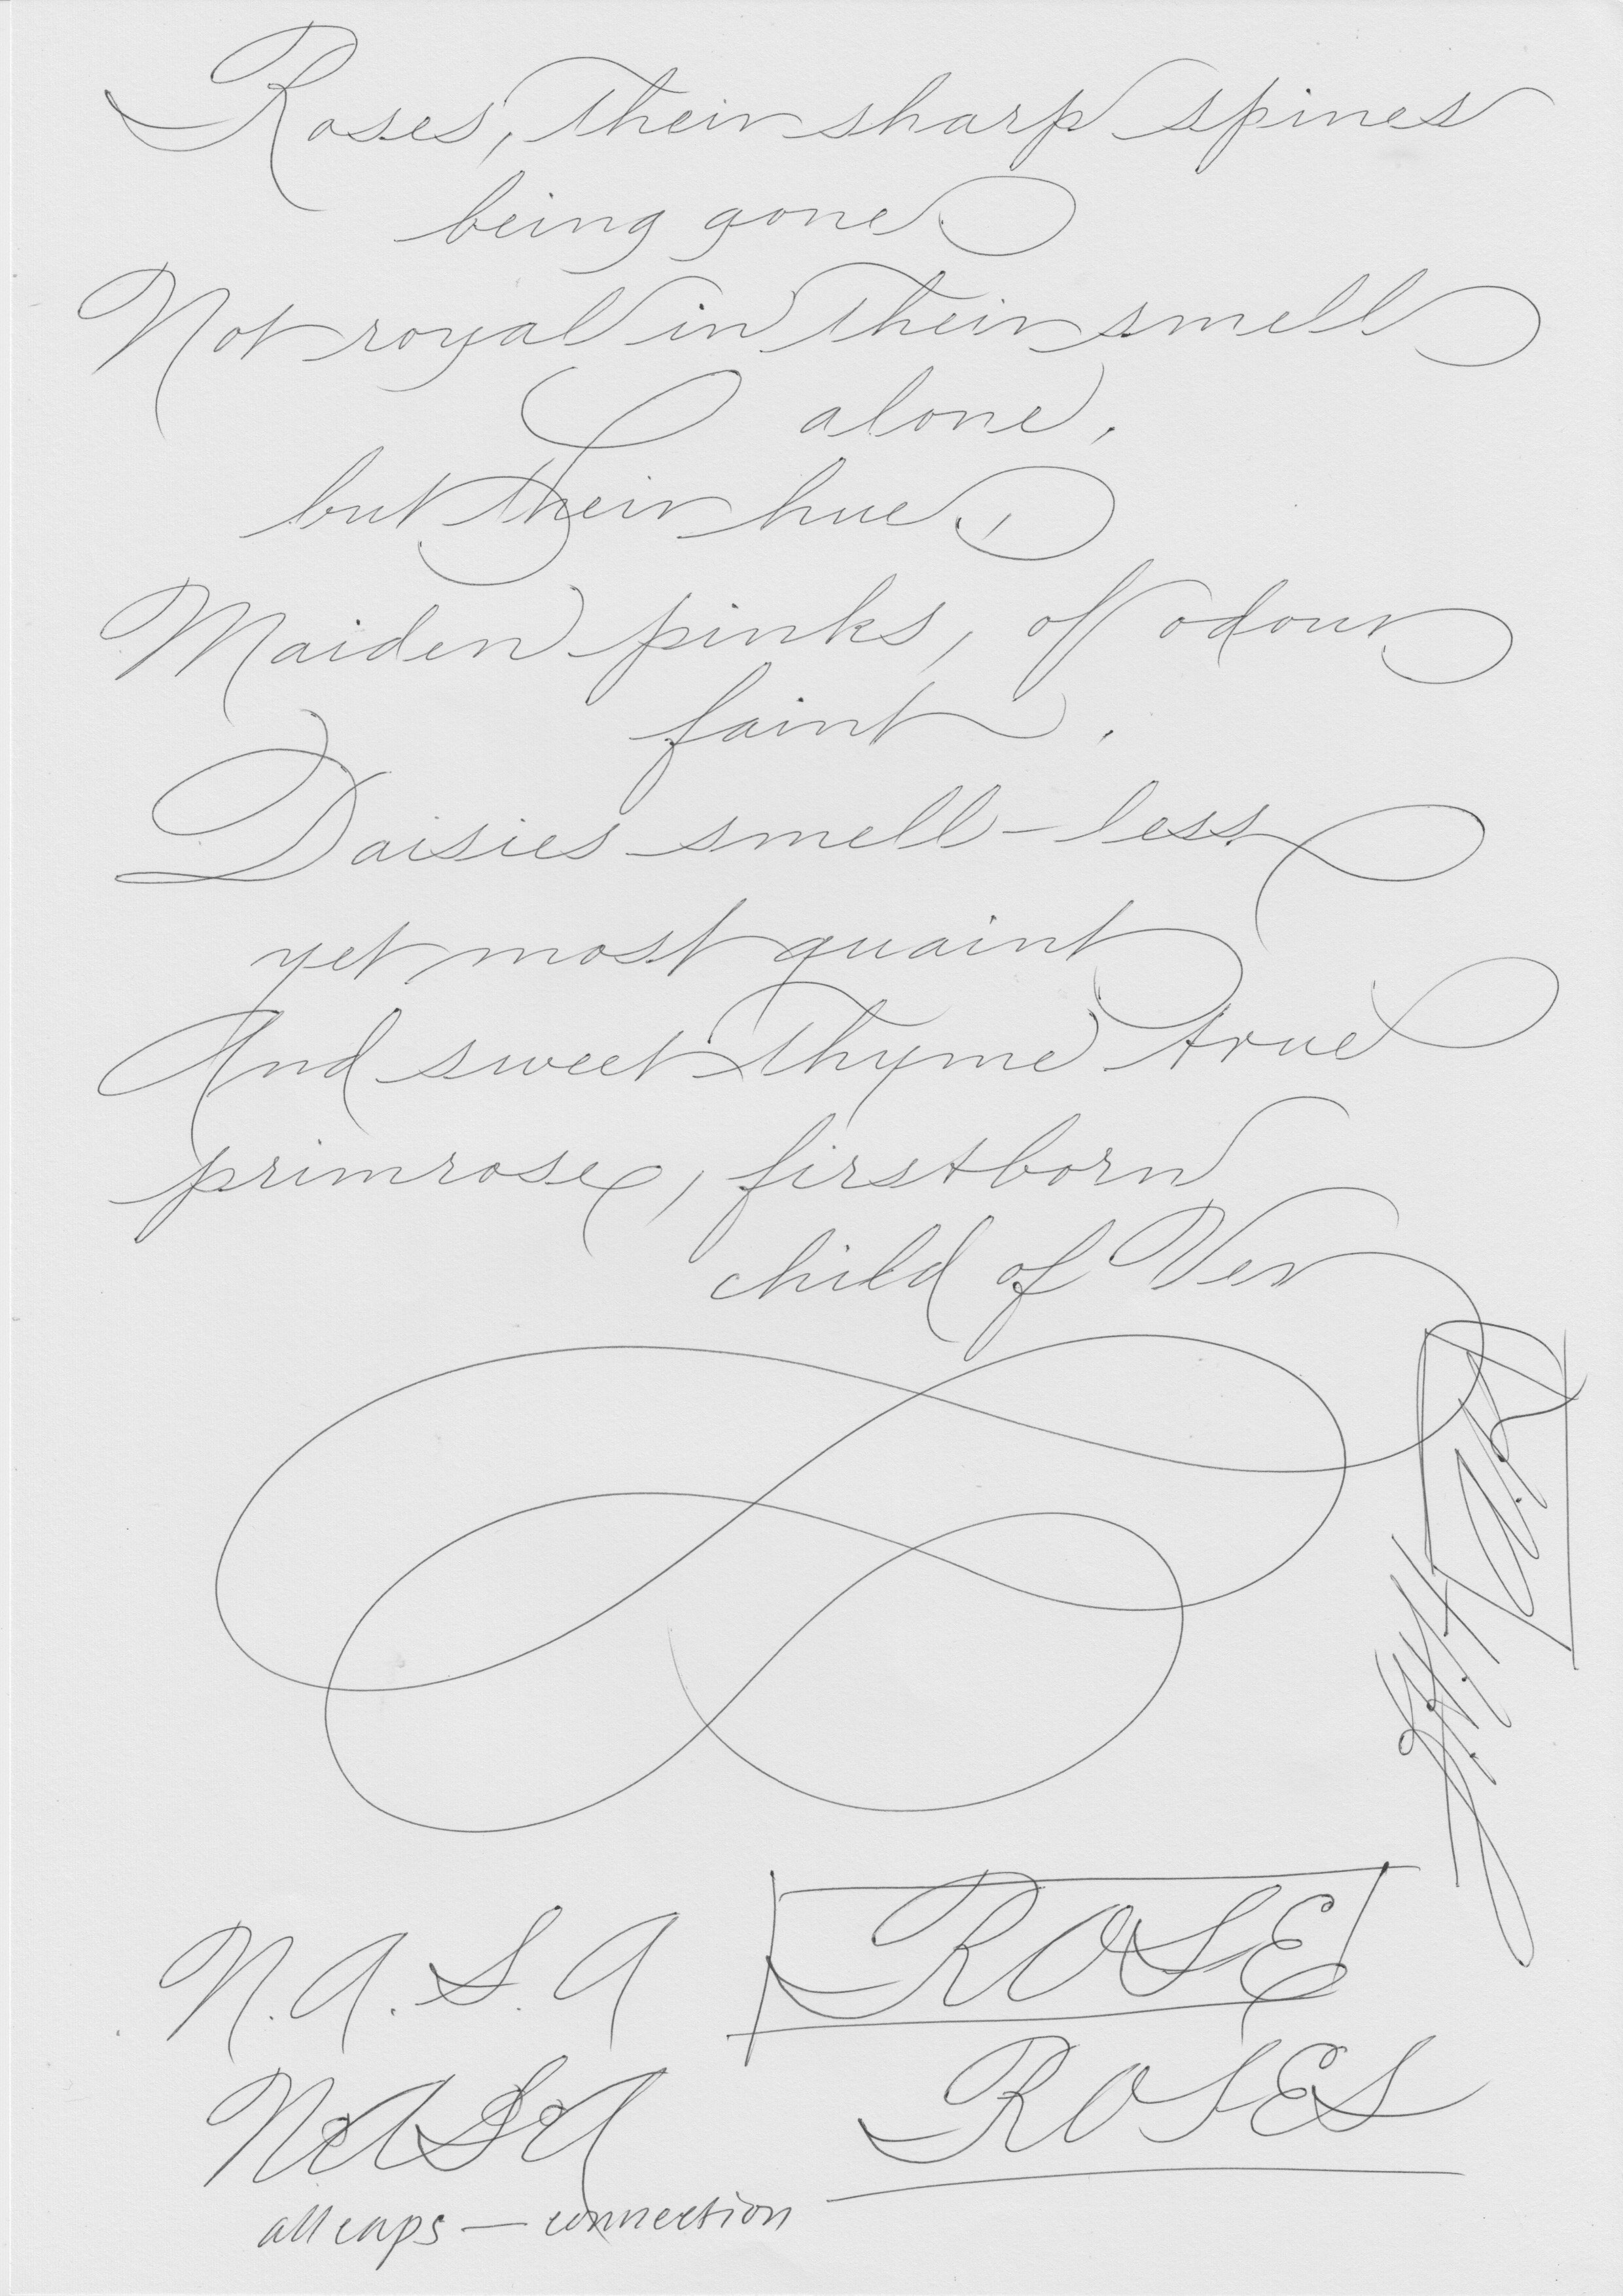 Roses, their sharp spines
being gone
Not royal in their smell
alone,
but their hue,
Maiden pinks, of odour
faint.
Daisies smell-less
yet most quaint
And sweet thyme true
primrose, firstborn
child of Ver
N.A.S.A
ROSE
NASA
ROSES
all caps — connection